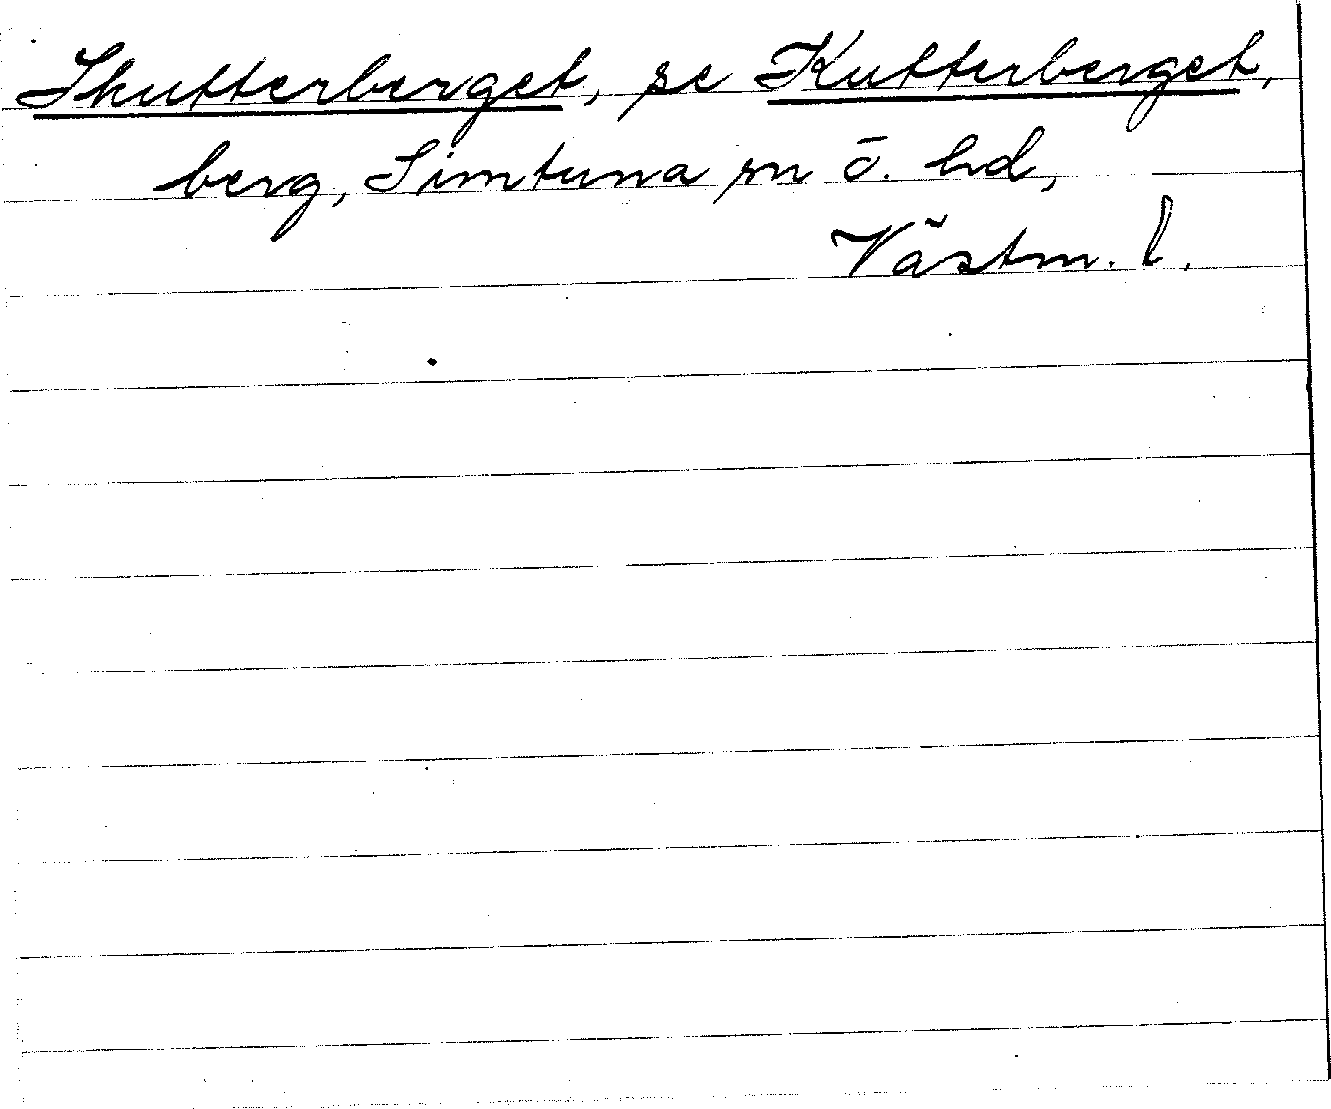 Skutterberget, se Kutterberget,
berg, Simtuna sn o. hd,
Västm. l.